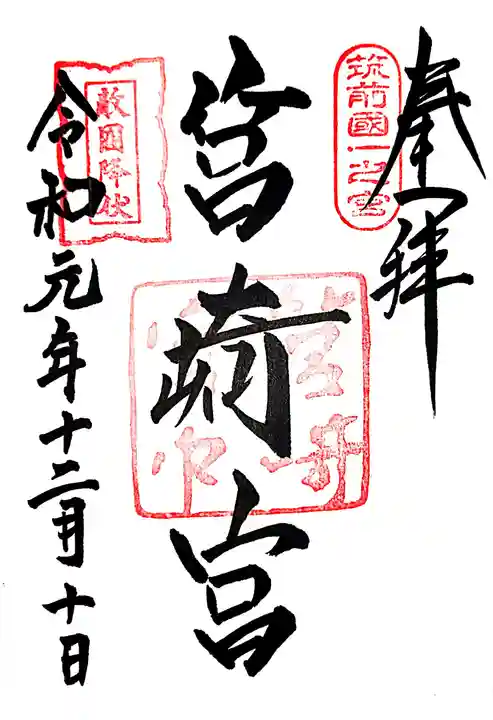 奉拝
筑前國一之宮
筥崎宮
敵國降伏
令和元年十二月十日